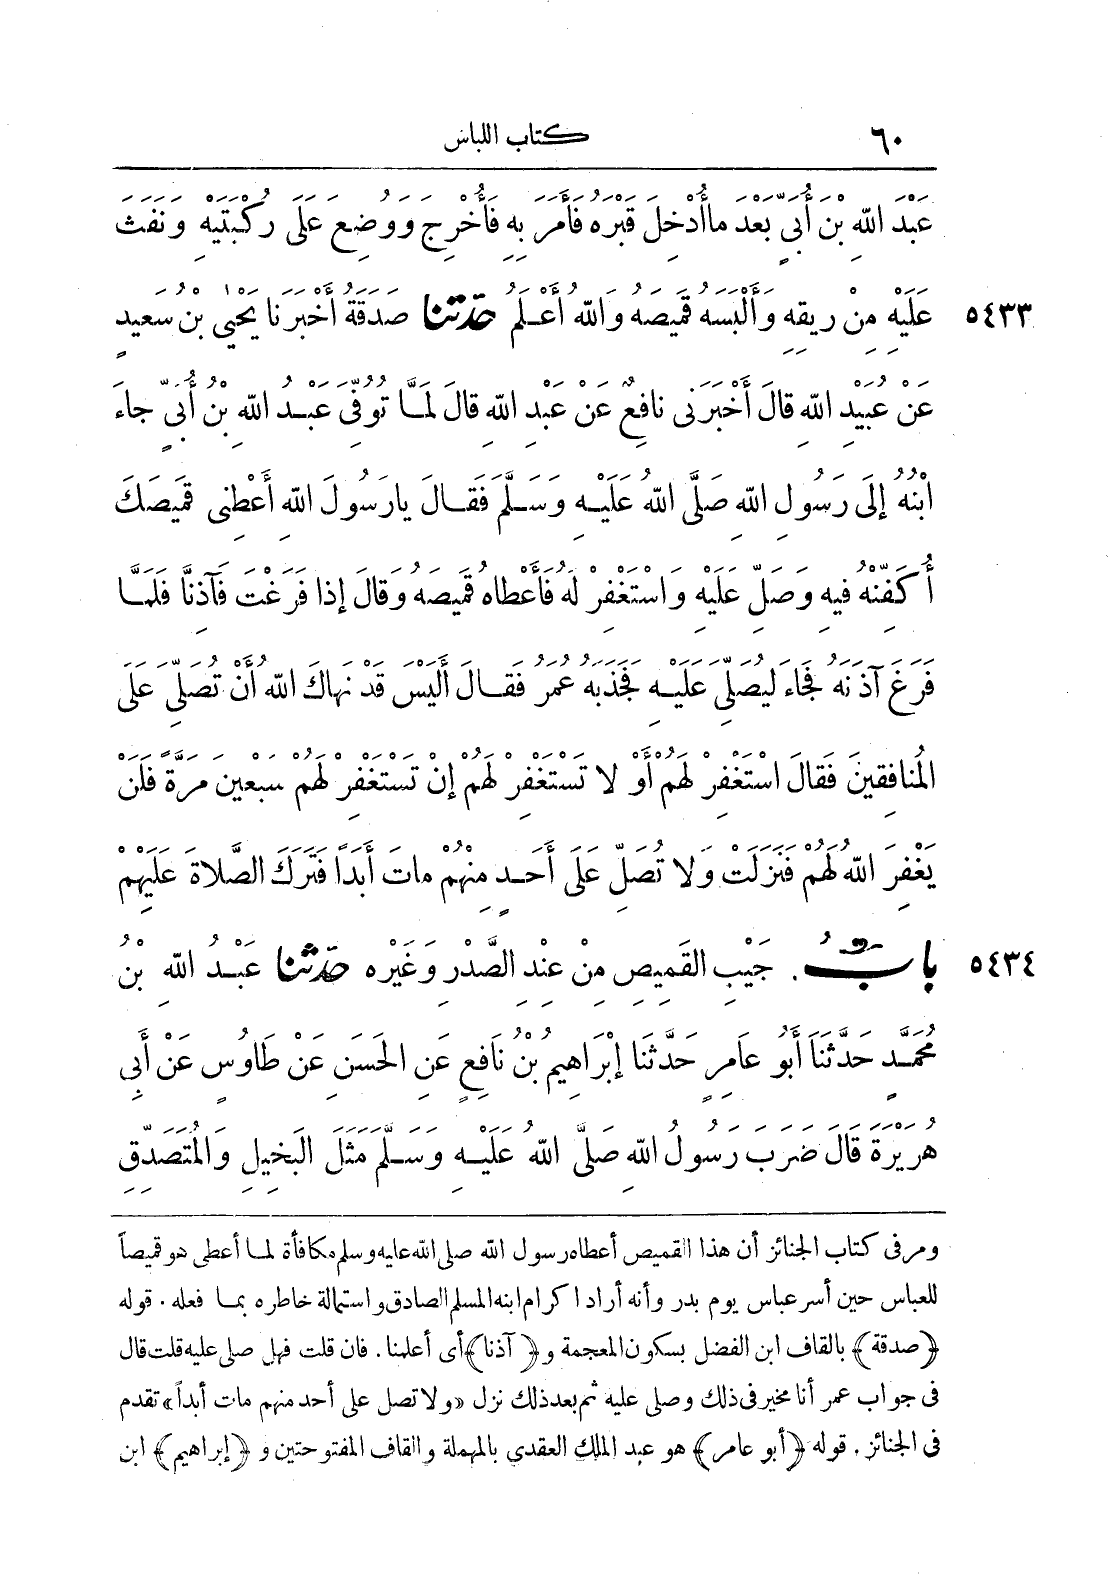 ٦٠ كتاب اللباس
عَبْدَ اللّٰهِ بْنَ أُبَيٍّ بَعْدَ ما أُدْخِلَ قَبْرَهُ فَأَمَرَ بِهِ فَأُخْرِجَ وَوُضِعَ عَلَى رُكْبَتَيْهِ وَنَفَثَ
٥٤٣٣ عَلَيْهِ مِنْ رِيقِهِ وَأَلْبَسَهُ قَمِيصَهُ وَاللّٰهُ أَعْلَمُ حدّثنا صَدَقَةُ أَخْبَرَنا يَحْيَى بْنُ سَعِيدٍ
عَنْ عُبَيْدِ اللّٰهِ قالَ أَخْبَرَنِى نافِعٌ عَنْ عَبْدِ اللّٰهِ قالَ لَمَّا تُوُفِّىَ عَبْدُ اللّٰهِ بْنُ أُبَىٍّ جاءَ
ابْنُهُ إِلَى رَسُولِ اللّٰهِ صَلَّى اللّٰهُ عَلَيْهِ وَسَلَّمَ فَقَالَ يارَسُولَ اللّٰهِ أَعْطِنِى قَمِيصَكَ
أُكَفِّنْهُ فِيهِ وَصَلِّ عَلَيْهِ وَاسْتَغْفِرْ لَهُ فَأَعْطاهُ قَمِيصَهُ وَقالَ إِذا فَرَغْتَ فَآذِنَّا فَلَمَّا
فَرَغَ آذَنَهُ فَجَاءَ لِيُصَلِّىَ عَلَيْهِ فَجَذَبَهُ عُمَرُ فَقَالَ أَلَيْسَ قَدْ نَهاكَ اللّٰهُ أَنْ تُصَلِّىَ عَلَى
المُنافِقِينَ فَقالَ اسْتَغْفِرْ لَهُمْ أَوْ لا تَسْتَغْفِرْ لَهُمْ إِنْ تَسْتَغْفِرْ لَهُمْ سَبْعِينَ مَرَّةً فَلَنْ
يَغْفِرَ اللّٰهُ لَهُمْ فَنَزَلَتْ وَلا تُصَلِّ عَلَى أَحَدٍ مِنْهُمْ ماتَ أَبَداً فَتَرَكَ الصَّلاةَ عَلَيْهِمْ
٥٤٣٤ بابُ جَيْبِ القَمِيصِ مِنْ عِنْدِ الصَّدْرِ وَغَيْرِه حدّثنا عَبْدُ اللّٰهِ بْنُ
مُحَمَّدٍ حَدَّثَنَا أَبُو عامِرٍ حَدَّثَنا إِبْرَاهِيمُ بْنُ نَافِعٍ عَنِ الحَسَنِ عَنْ طَاوُسٍ عَنْ أَبِى
هُرَيْرَةَ قَالَ ضَرَبَ رَسُولُ اللّٰهِ صَلَّى اللّٰهُ عَلَيْهِ وَسَلَّمَ مَثَلَ البَخِيلِ وَالمُتَصَدِّقِ
ومر فى كتاب الجنائز أن هذا القميص أعطاه رسول الله صلى الله عليه وسلم مكافأة لما أعطى هو قميصاً
للعباس حين أسر عباس يوم بدر وأنه أراد اكرام ابنه المسلم الصادق واستمالة خاطره بما فعله . قوله
﴿صدقة﴾ بالقاف ابن الفضل بسكون المعجمة و﴿آذنا﴾ أى أعلمنا . فان قلت فهل صلى عليه قلت قال
فى جواب عمر أنا مخير فى ذلك وصلى عليه ثم بعد ذلك نزل «ولا تصل على أحد منهم مات أبداً» تقدم
فى الجنائز . قوله ﴿أبو عامر﴾ هو عبد الملك العقدي بالمهملة والقاف المفتوحتين و ﴿إبراهيم﴾ ابن